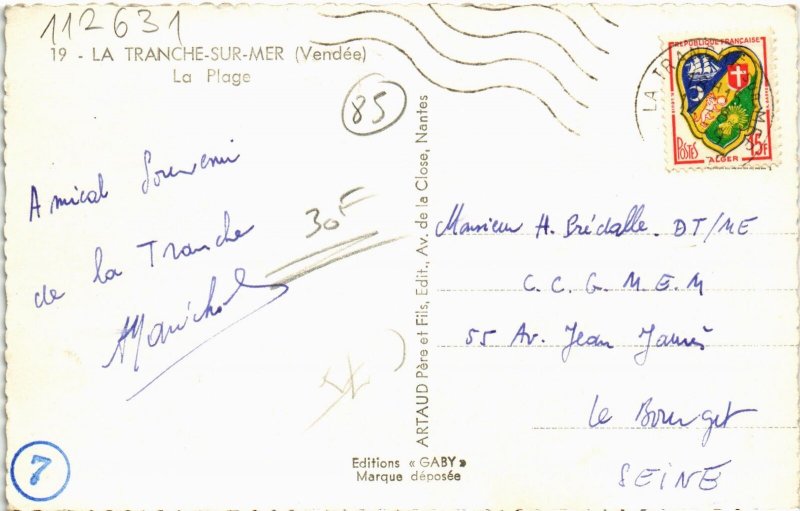 112631
19 - LA TRANCHE-SUR-MER (Vendée)
La Plage
85
Amical Souvenir
de la Tranche
30F
ARTAUD Père et Fils, Edit., Av. de la Close, Nantes
Editions « GABY »
Marque déposée
7
REPUBLIQUE FRANCAISE
POSTES
ALGER
15F
LA TRAN
Monsieur H. Brédalle. DT/ME
C.C.G.M.E.M
55 Av. Jean Jaurès
Le Bourget
SEINE